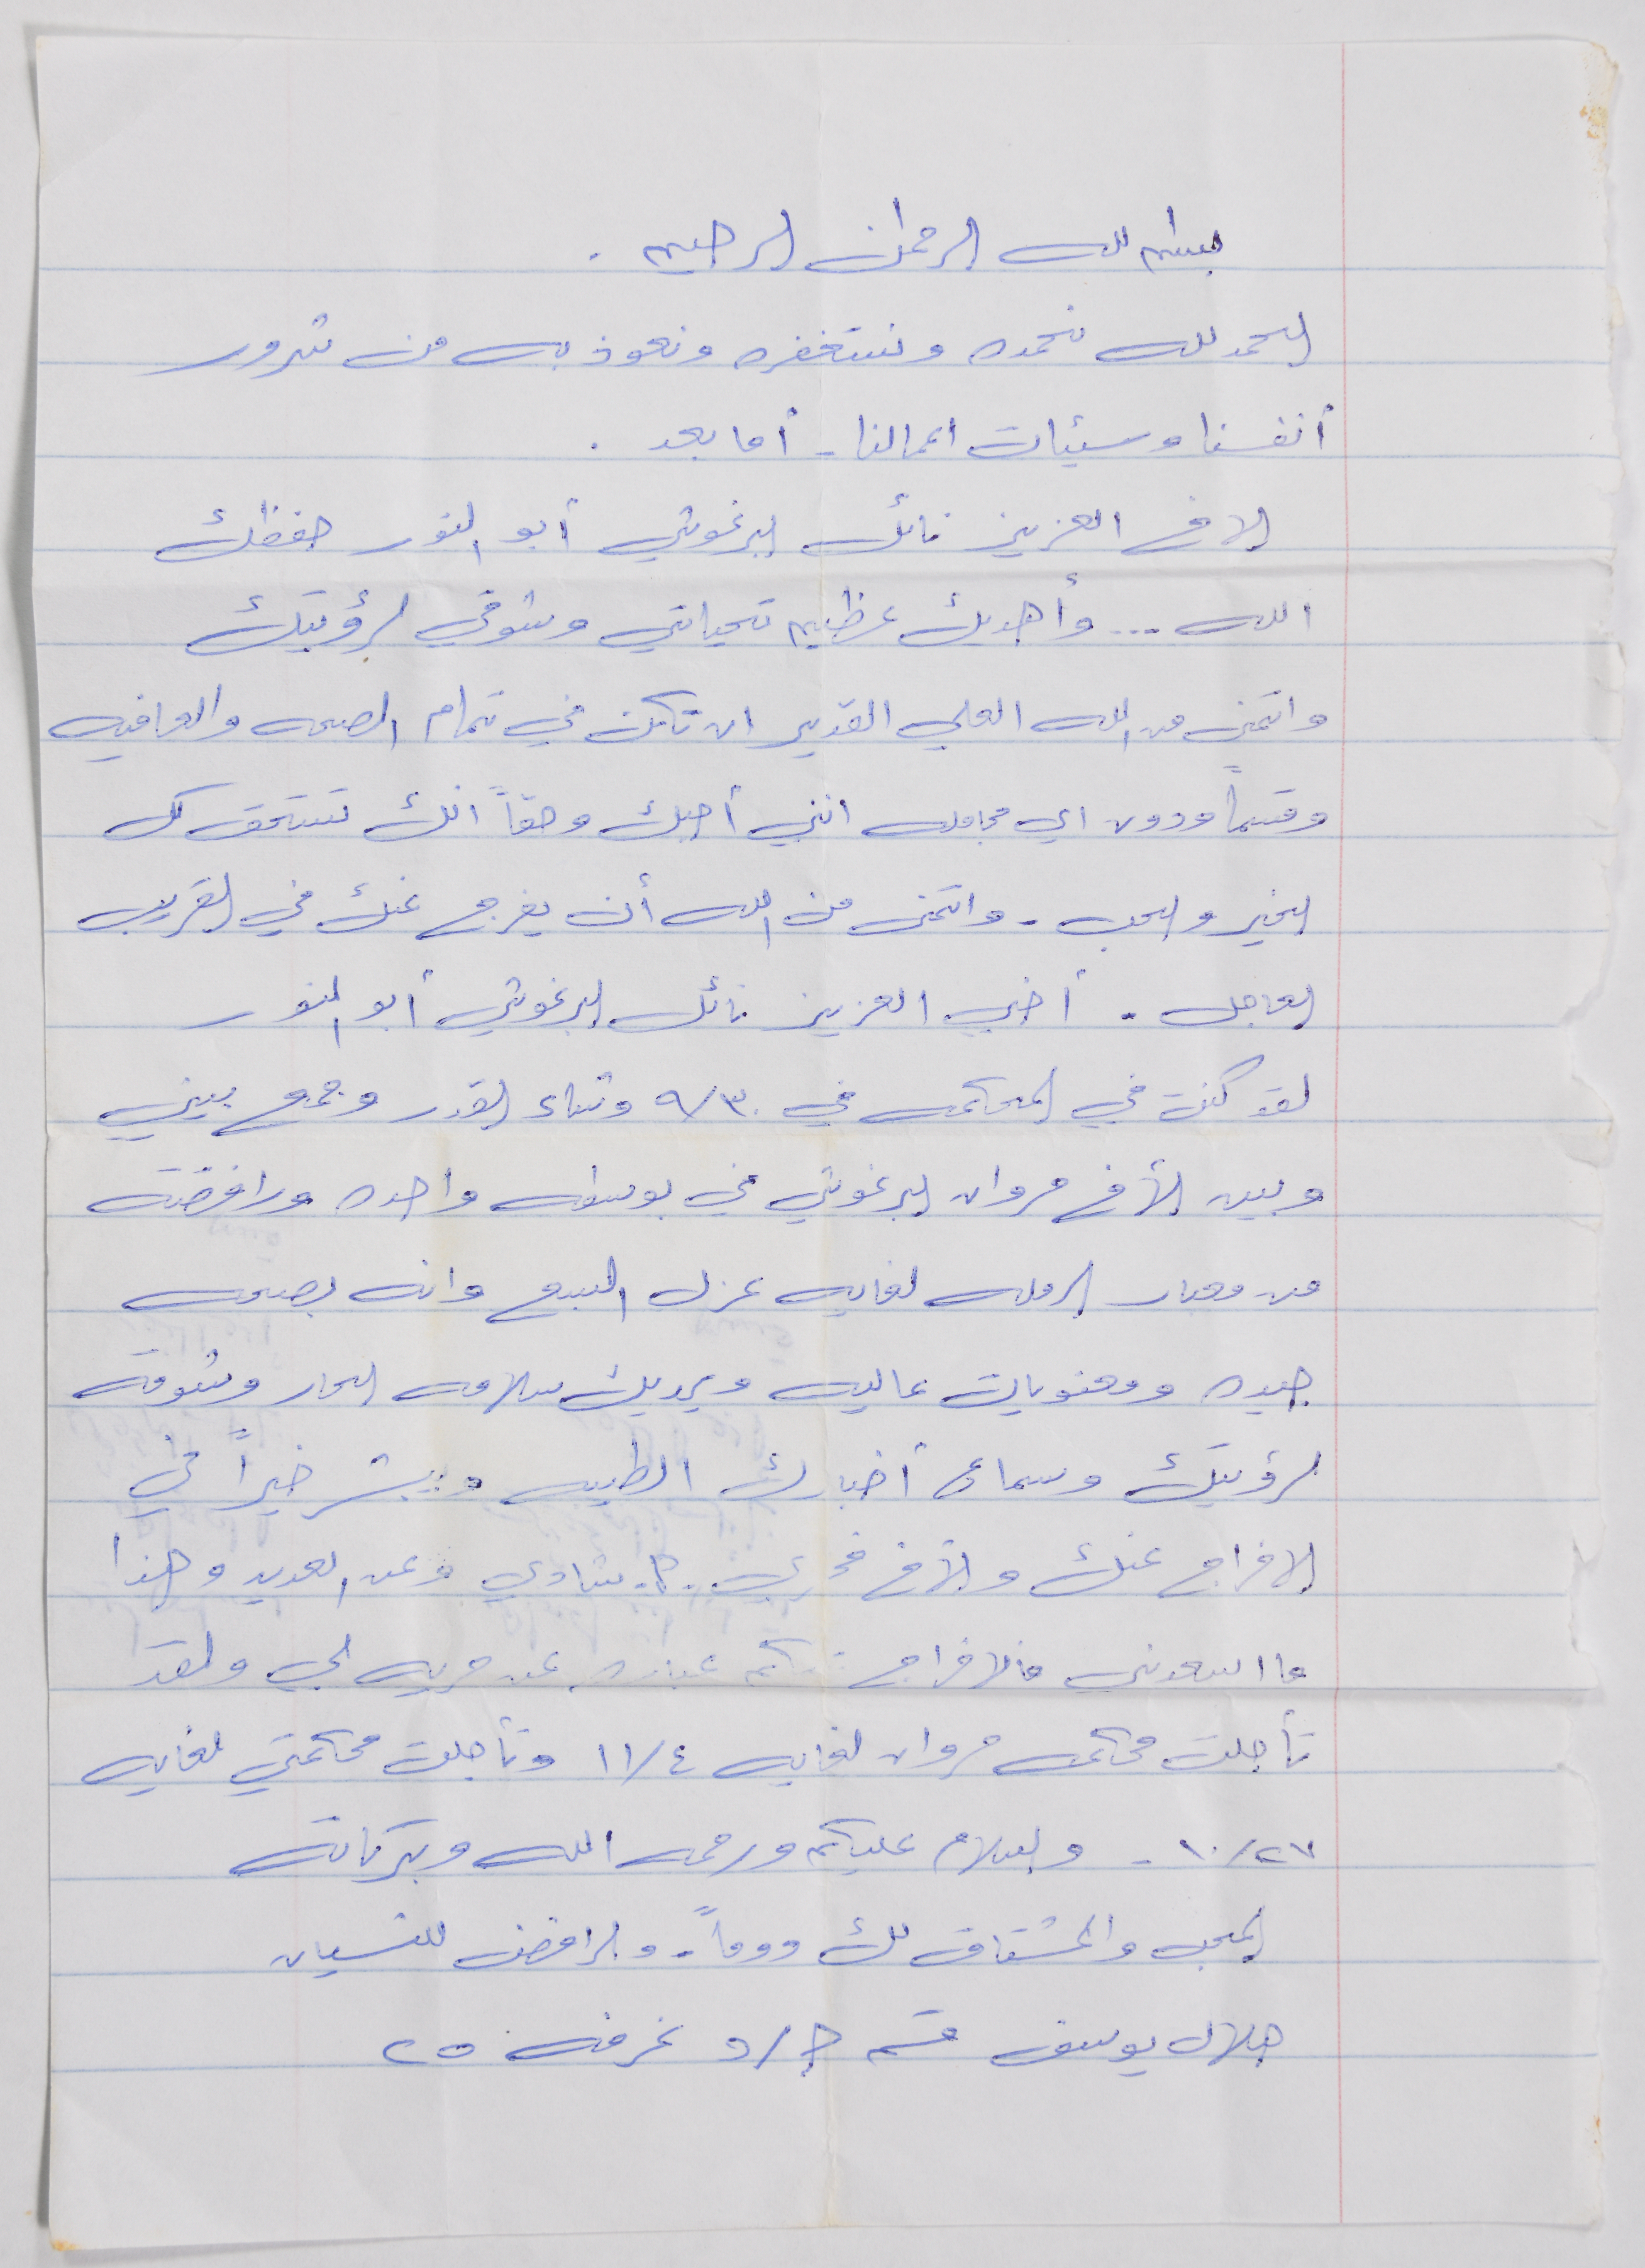 بسم الله الرحمن الرحيم .
الحمد لله نحمده ونستغفره ونعوذ به من شرور
أنفسنا وسيئات اعمالنا - أما بعد .
الاخ العزيز نائل البرغوثي أبو النور حفظك
الله ... وأهديك عظيم تحياتي وشوقي لرؤيتك
واتمنى من الله العلي القدير ان تكن في تمام الصحه والعافيه
وقسماً ودون اي مجامله انني أحبك وحقاً انك تستحق كل
الخير والحب . واتمنى من الله أن يفرج عنك في القريب
العاجل . أخي العزيز نائل البرغوثي أبو النور
لقد كنت في المحكمه في ٩/٣٠ وشاء القدر وجمع بيني
وبين الأخ مروان البرغوثي في بوسطه واحده ورافقته
من معبار الرمله لغايه عزل السبع وانه بصحه
جيده ومعنويات عاليه ويهديك سلامه الحار وشوقه
لرؤيتك وسماع أخبارك الطيبه ويبشر خيراً في
الافراج عنك والأخ فخري وعن العديد وهذا
ما اسعدني فالافراج عنكم عباره عن حريه لي ولقد
تأجلت محكمه مروان لغايه ١١/٤ وتأجلت محكمتي لغايه
١٠/٢٧ - والسلام عليكم ورحمه الله وبركاته
المحب والمشتاق لك دوماً . والرافض للنسيان
جلال يوسف قسم غرفه ٢٥